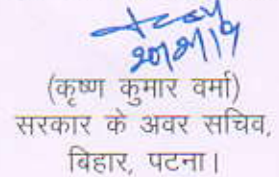 (कृष्ण कुमार वर्मा)
सरकार के अवर सचिव,
बिहार, पटना।